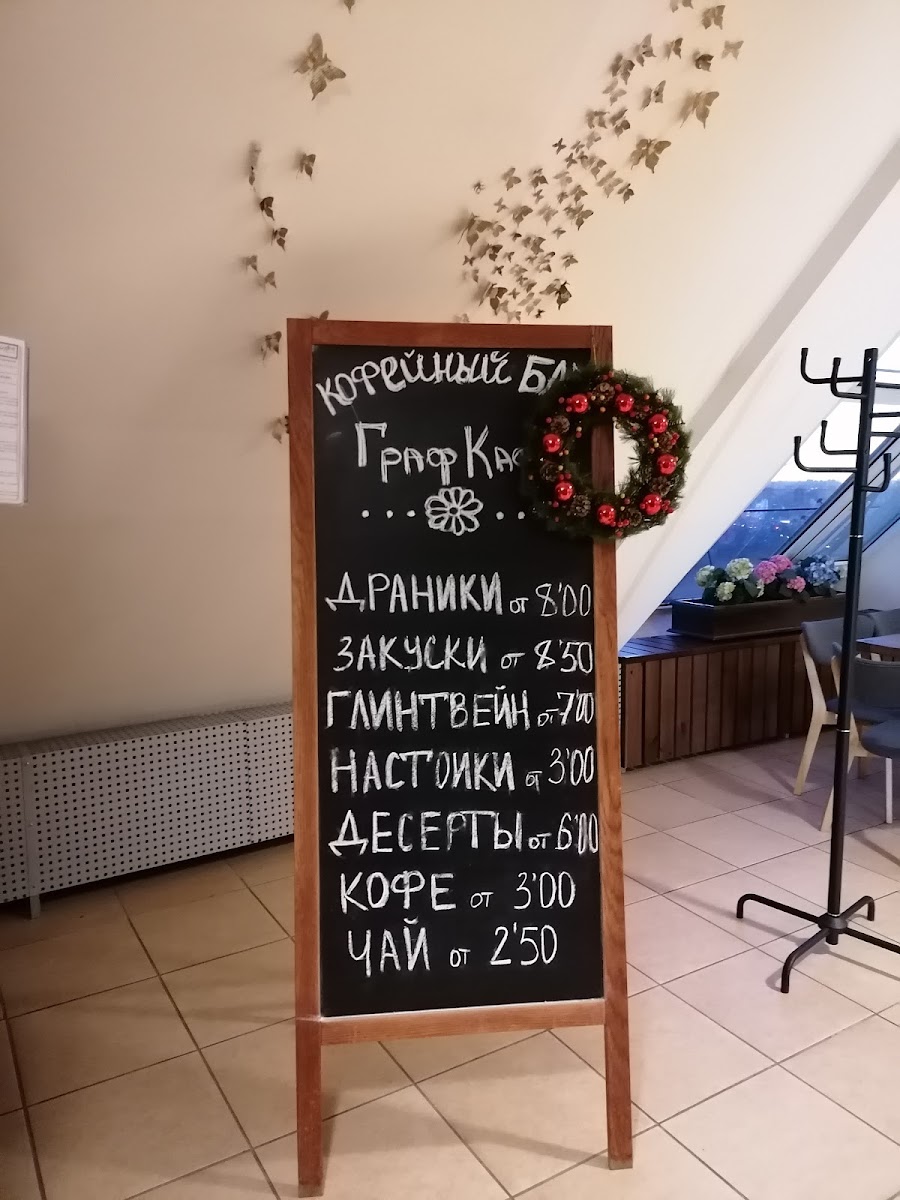 КОФЕЙНЫЙ
ГРАФ
ДРАНИКИ ОТ 8'00
ЗАКУСКИ ОТ 8'50
ГЛИНТВЕЙН ОТ 7'00
НАСТОЙКИ ОТ 3'00
ДЕСЕРТЫ ОТ 6'00
КОФЕ ОТ 3'00
ЧАЙ ОТ 2'50